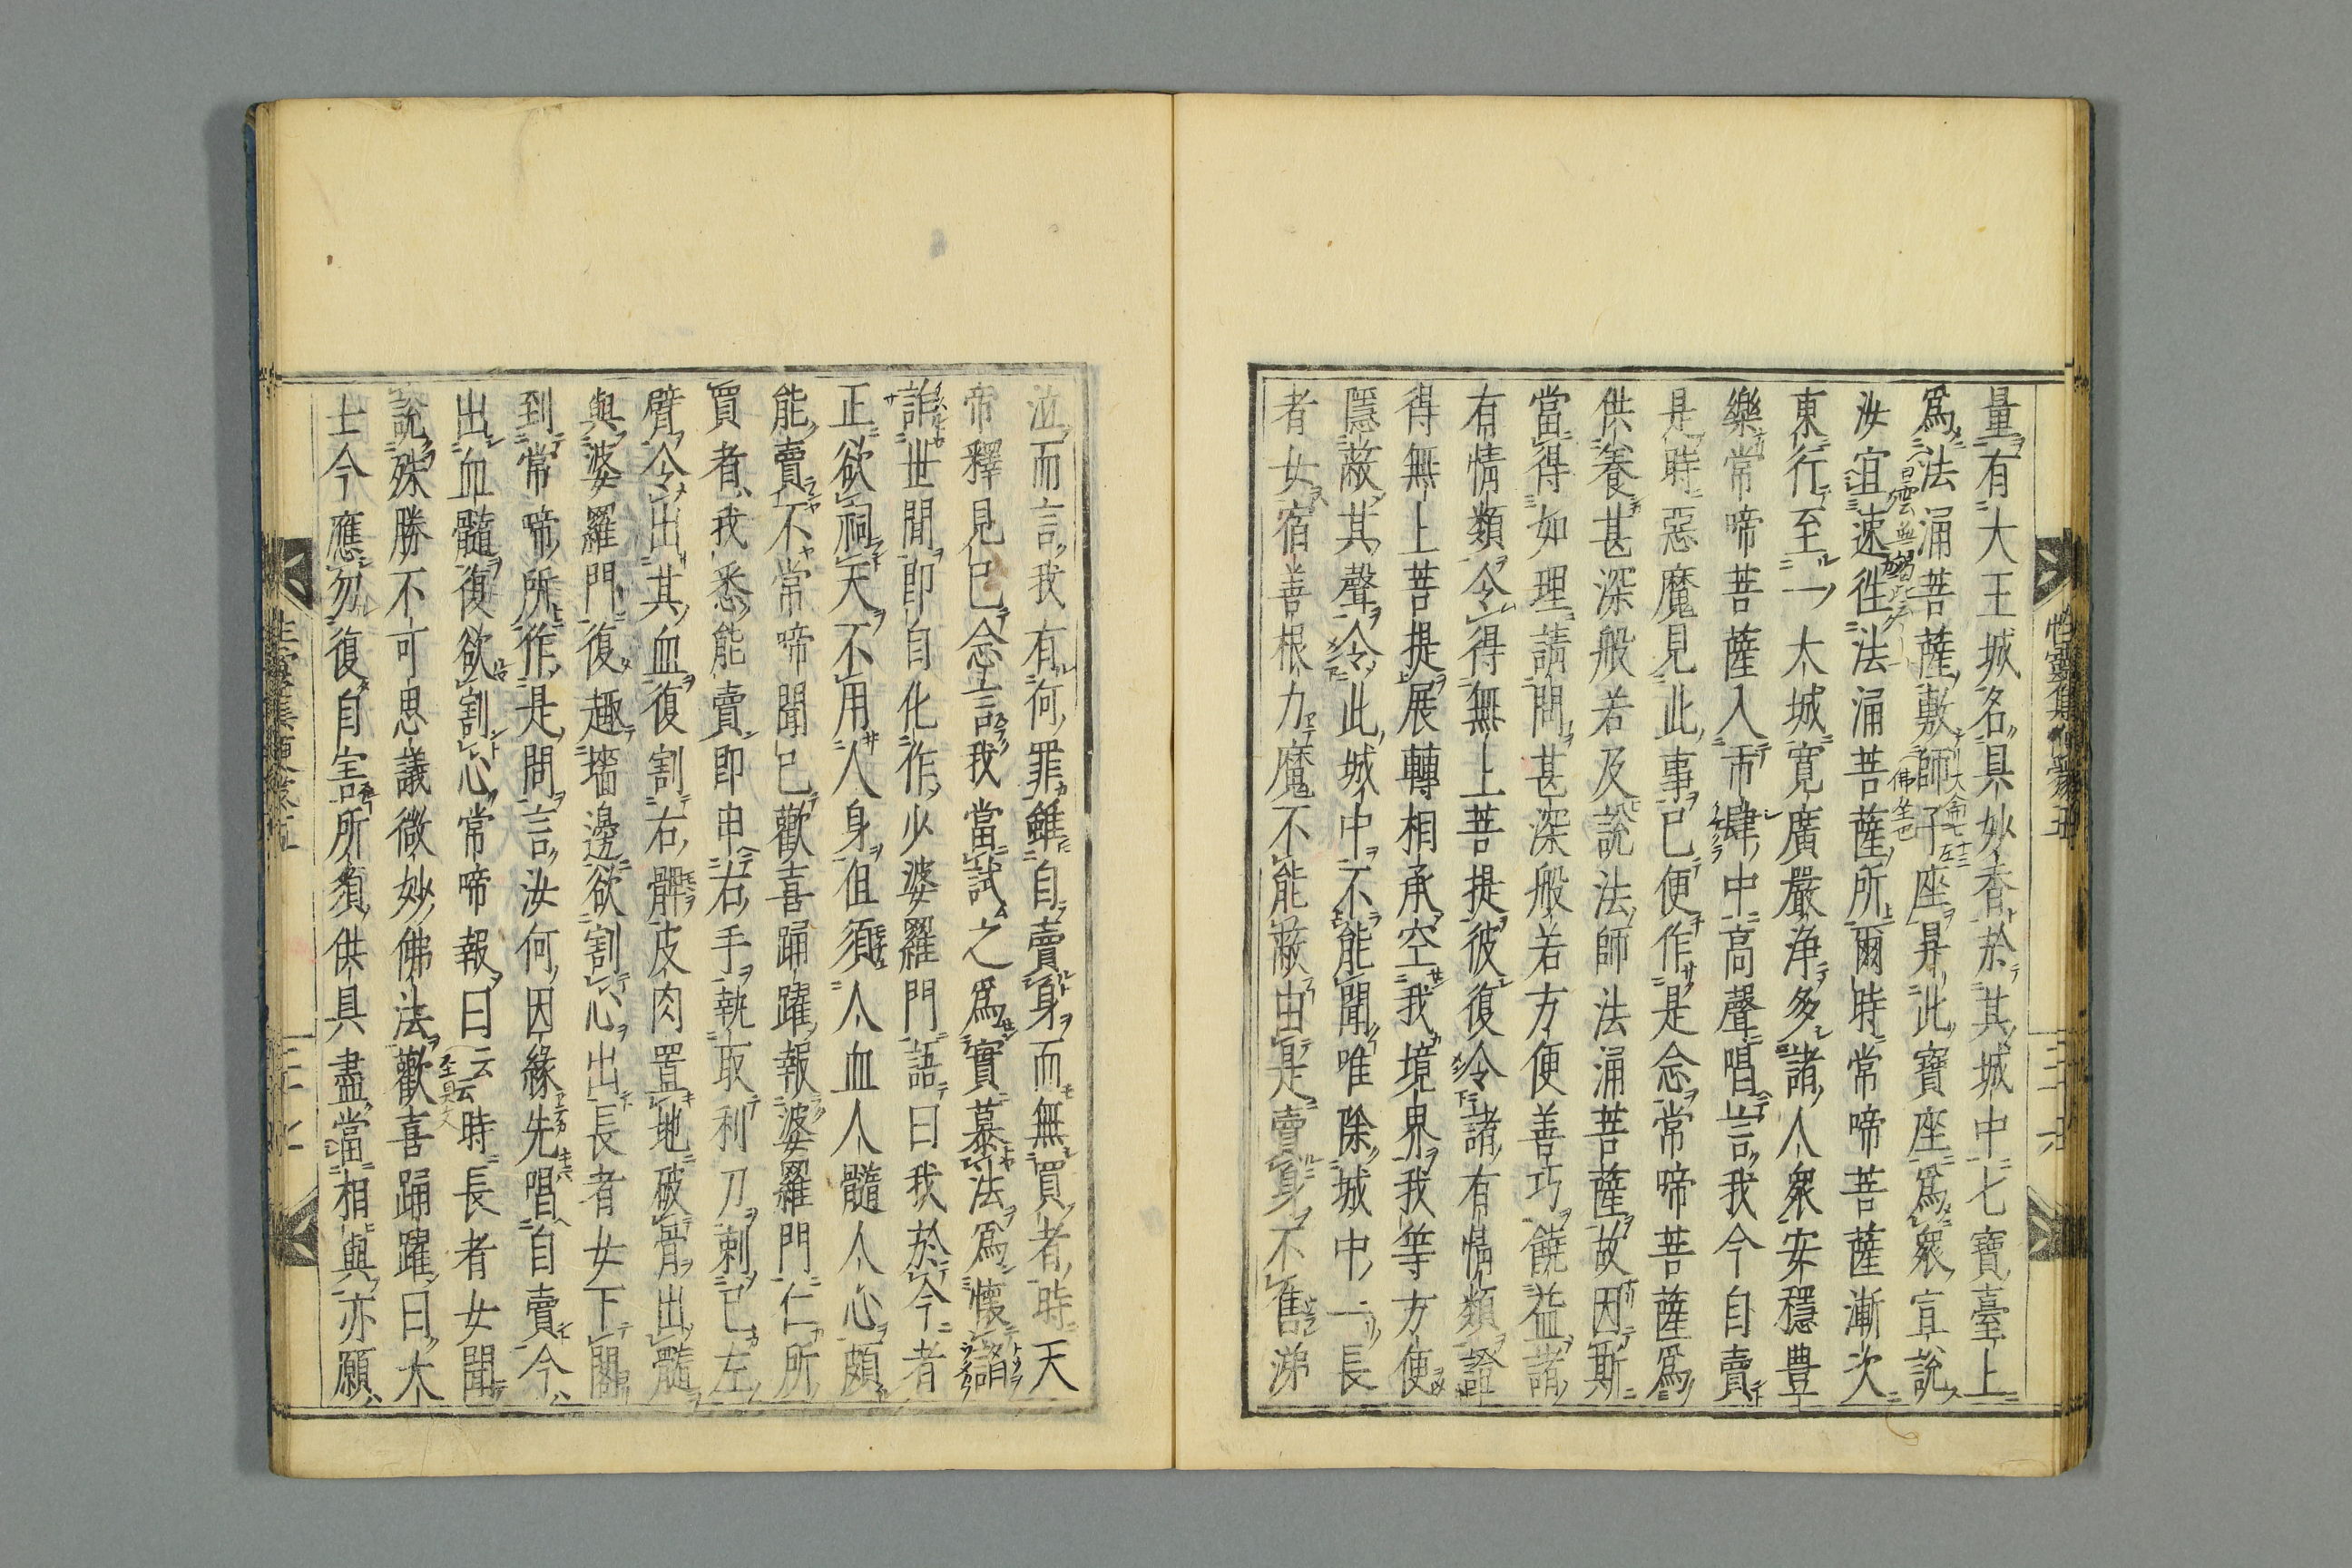 量有大王城名具妙香於其城中七寶臺上
爲法涌菩薩敷師子座昇此寶座爲衆宣說
汝宜速徃法涌菩薩所爾時常啼菩薩漸次
東行至一大城寬廣嚴浄多諸人衆安穩豊
樂常啼菩薩入市肆中高聲唱言我今自賣
是時惡魔見此事已便作是念常啼菩薩爲
供養甚深般若及說法師法涌菩薩故因斯
當得如理請問甚深般若方便善巧饒益諸
有情類令得無上菩提彼復令諸有情類證
得無上菩提展轉相承空我境界我等方便
隱蔽其聲令此城中不能聞唯除城中一長
者女宿善根力魔不能蔽由是賣身不售涕
泣而言我有何罪雖自賣身而無買者時天
帝釋見已念言我當試之爲實慕法爲懷謟
詐世間即自化作少婆羅門語曰我於今者
正欲祠天不用人身但須人血人髓人心頗
能賣不常啼聞已歡喜踊躍報婆羅門仁所
買者我悉能賣即申右手執取利刀刺已左
臂令出其血復割右髀皮肉置地破骨出髓
與婆羅門復趣墻邊欲割心出長者女下閣
到常啼所作是問言汝何因緣先唱自賣今
出血髓復欲割心常啼報曰云云時長者女聞
說殊勝不可思議微妙佛法歡喜踊躍曰大
士今應勿復自害所須供具盡當相與亦願